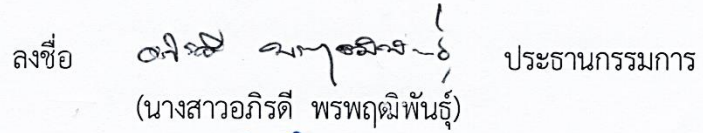 ลงชื่อ อภิรดี พรพฤฒิพันธุ์ ประธานกรรมการ
(นางสาวอภิรดี พรพฤฒิพันธุ์)